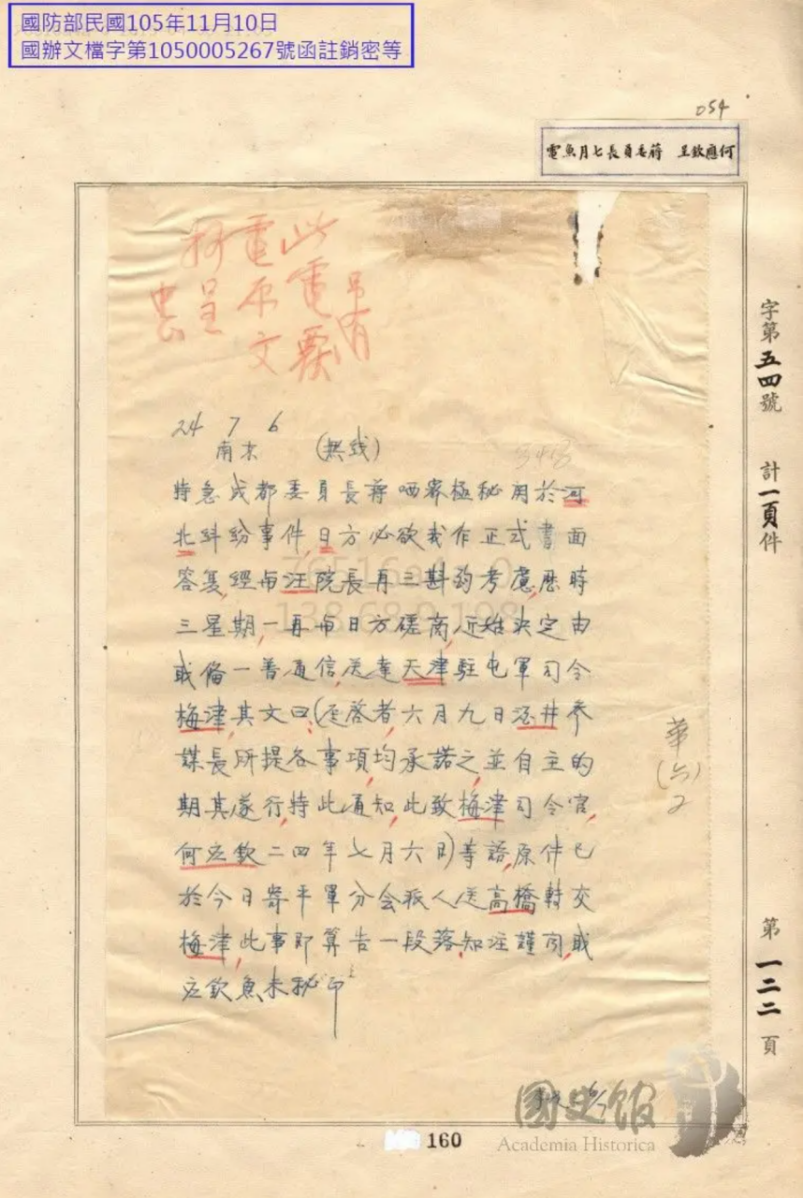 國防部民國105年11月10日
國辦文檔字第1050005267號函註銷密等
054
何應欽呈 蔣委員長七月魚電
此電要
電不文
呈
24 7 6
南京 (無线)
特急成都委員長蔣 密極秘関於河
北糾紛事件,日方必欲我作正式書面
答复,經与汪院長再三斟酌考慮,歷時
三星期,一再与日方磋商,近始決定由
職備一普通信,送達天津駐屯軍司令
梅津,其文曰:(逕啓者,六月九日酒井參
謀長所提各事項,均承諾之,並自主的
期其遂行,特此通知,此致梅津司令官,
何应欽二四年七月六日)等語,原件已
於今日寄平軍分会派人送高橋轉交
梅津,此事即算告一段落,知注謹聞,職
应欽魚未秘印
字第五四號
計一頁件
第一二二頁
國史館
Academia Historica
160